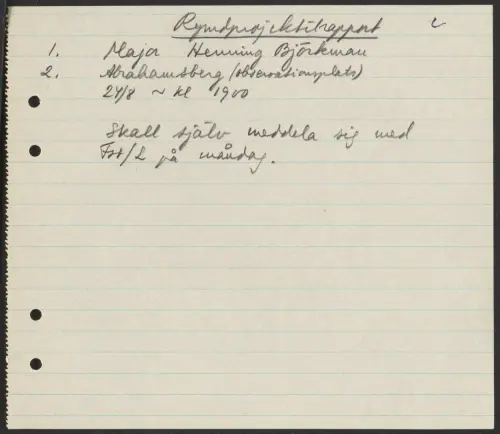 Rymdprojektilrapport
1. Major Henning Björkman
2. Abrahamsberg (observationsplats)
24/8 ~ kl 1900
Skall själv meddela sig med
Fst/L på måndag.